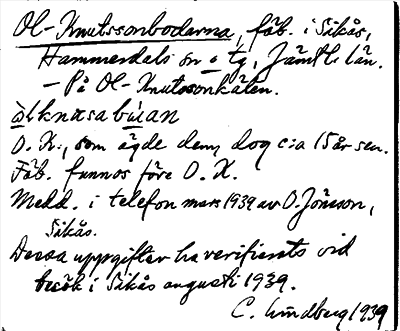 Ol-Knutssonbodarna, fäb. i Sikås,
Hammerdals sn o tg, Jämtl. län.
– På Ol-Knutssonkälen.
òlknɤsabúan
O. K., som ägde dem, dog c:a 15 år sen.
Fäb. funnos före O. K.
Medd. i telefon mars 1939 av O. Jönsson,
Sikås.
Dessa uppgifter ha verifierats vid
besök i Sikås augusti 1939.
C. Lindberg 1939